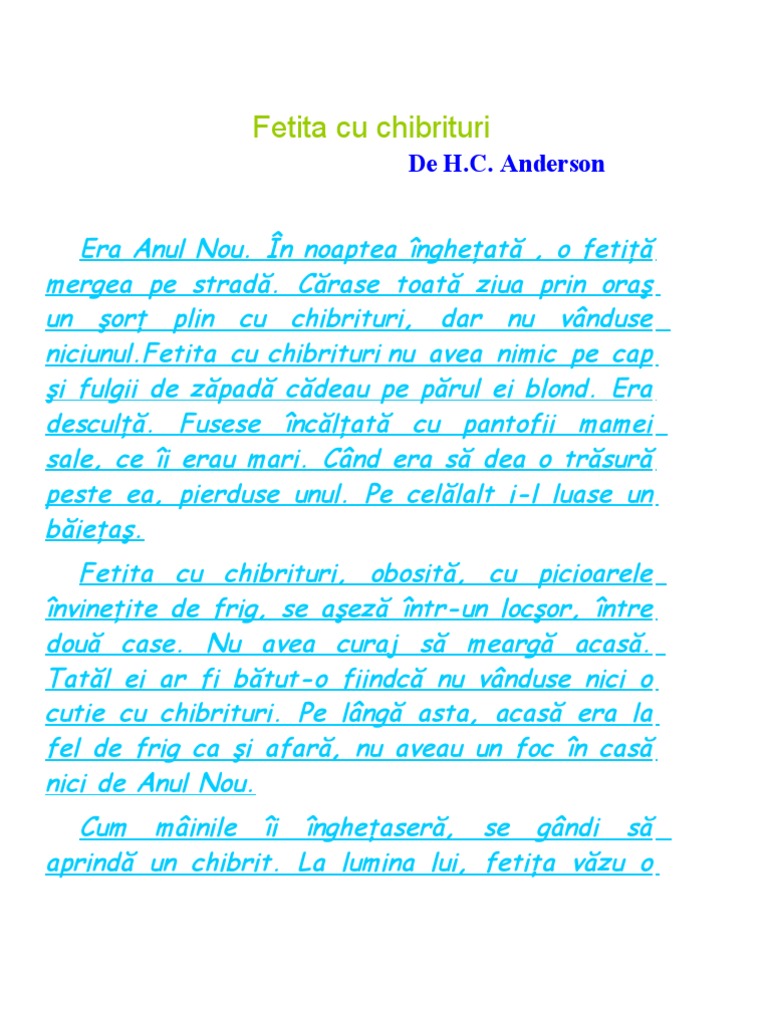 Fetita cu chibrituri
De H.C. Anderson
Era Anul Nou. În noaptea îngheţată , o fetiţă
mergea pe stradă. Cărase toată ziua prin oraş
un şorţ plin cu chibrituri, dar nu vânduse
niciunul.Fetita cu chibrituri nu avea nimic pe cap
şi fulgii de zăpadă cădeau pe părul ei blond. Era
desculţă. Fusese încălţată cu pantofii mamei
sale, ce îi erau mari. Când era să dea o trăsură
peste ea, pierduse unul. Pe celălalt i-l luase un
băieţaş.
Fetita cu chibrituri, obosită, cu picioarele
învineţite de frig, se aşeză într-un locşor, între
două case. Nu avea curaj să meargă acasă.
Tatăl ei ar fi bătut-o fiindcă nu vânduse nici o
cutie cu chibrituri. Pe lângă asta, acasă era la
fel de frig ca şi afară, nu aveau un foc în casă
nici de Anul Nou.
Cum mâinile îi îngheţaseră, se gândi să
aprindă un chibrit. La lumina lui, fetiţa văzu o